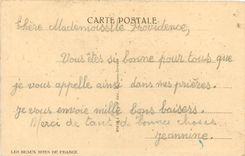 CARTE POSTALE
Chère Mademoiselle Providence,
Vous êtes si bonne pour tous que
je vous appelle ainsi dans mes prières.
Je vous envoie mille bons baisers.
Merci de tant de bonnes choses
Jeannine.
LES BEAUX SITES DE FRANCE